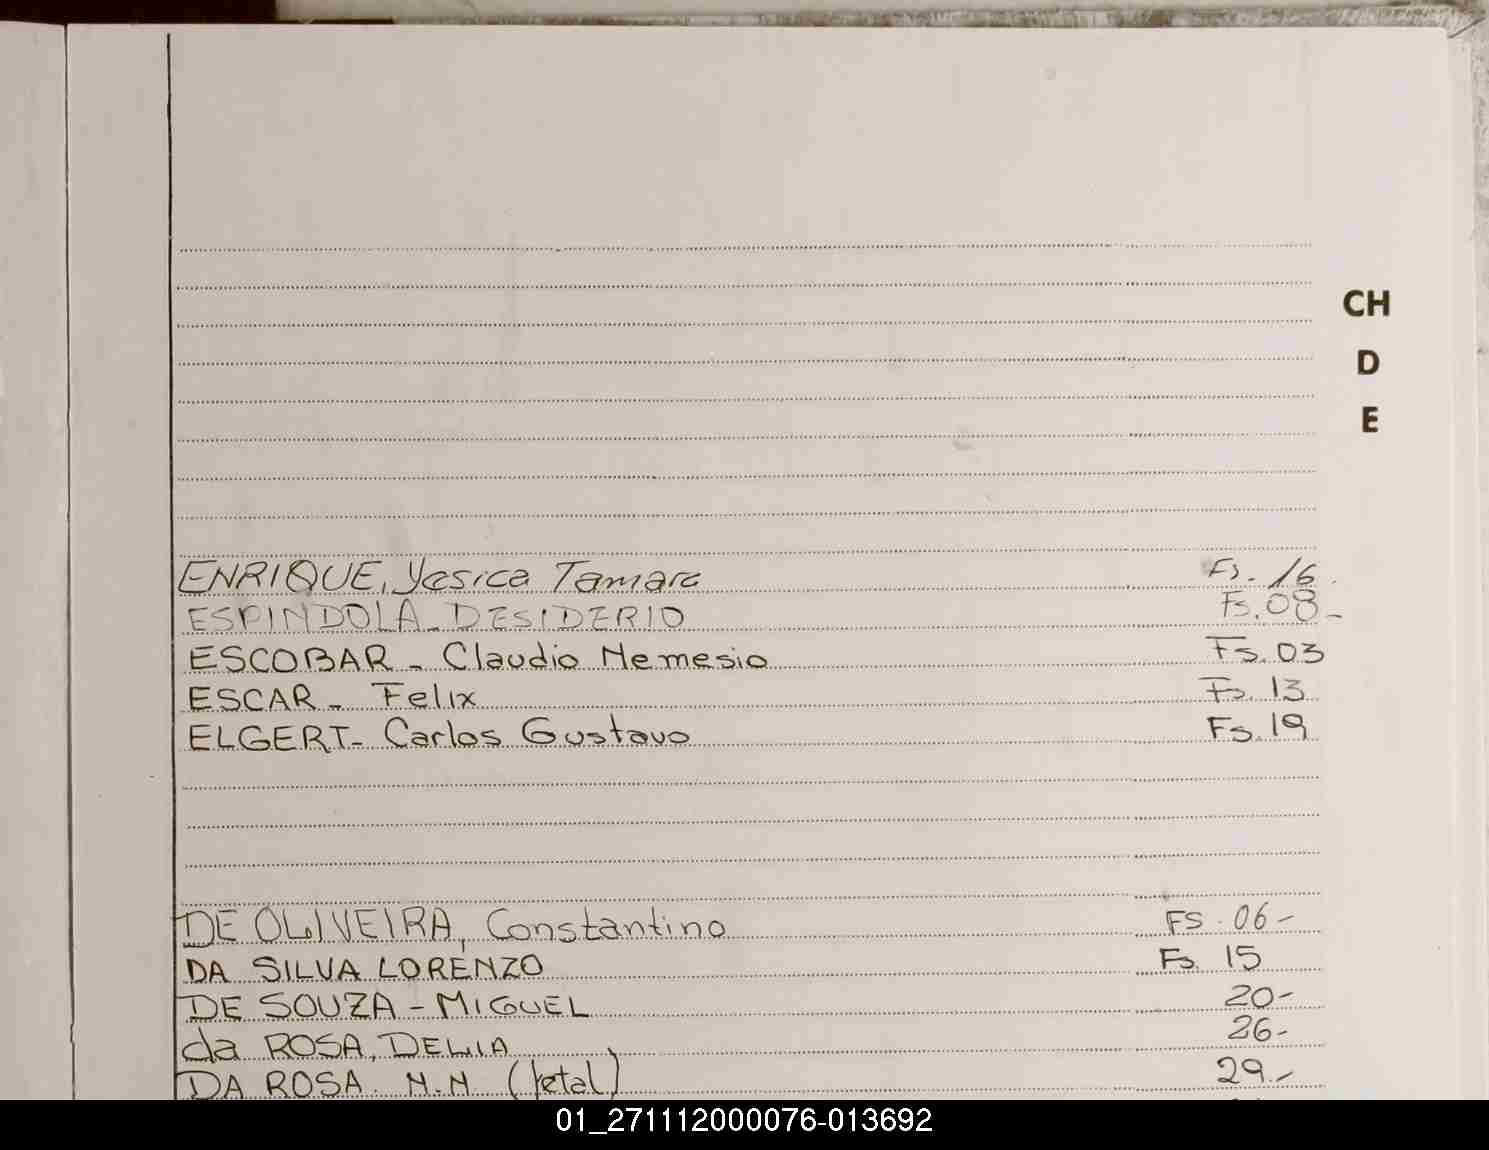 CH
D
E
ENRIQUE, Yesica Tamara Fs. 16
ESPINDOLA - DESIDERIO Fs. 08 -
ESCOBAR - Claudio Nemesio Fs. 03
ESCAR - Felix Fs. 13
ELGERT - Carlos Gustavo Fs. 19
DE OLIVEIRA, Constantino FS. 06 -
DA SILVA LORENZO Fs. 15
DE SOUZA - MIGUEL 20 -
da ROSA, DELIA 26 -
DA ROSA N.N (fetal) 29 -
01_271112000076-013692